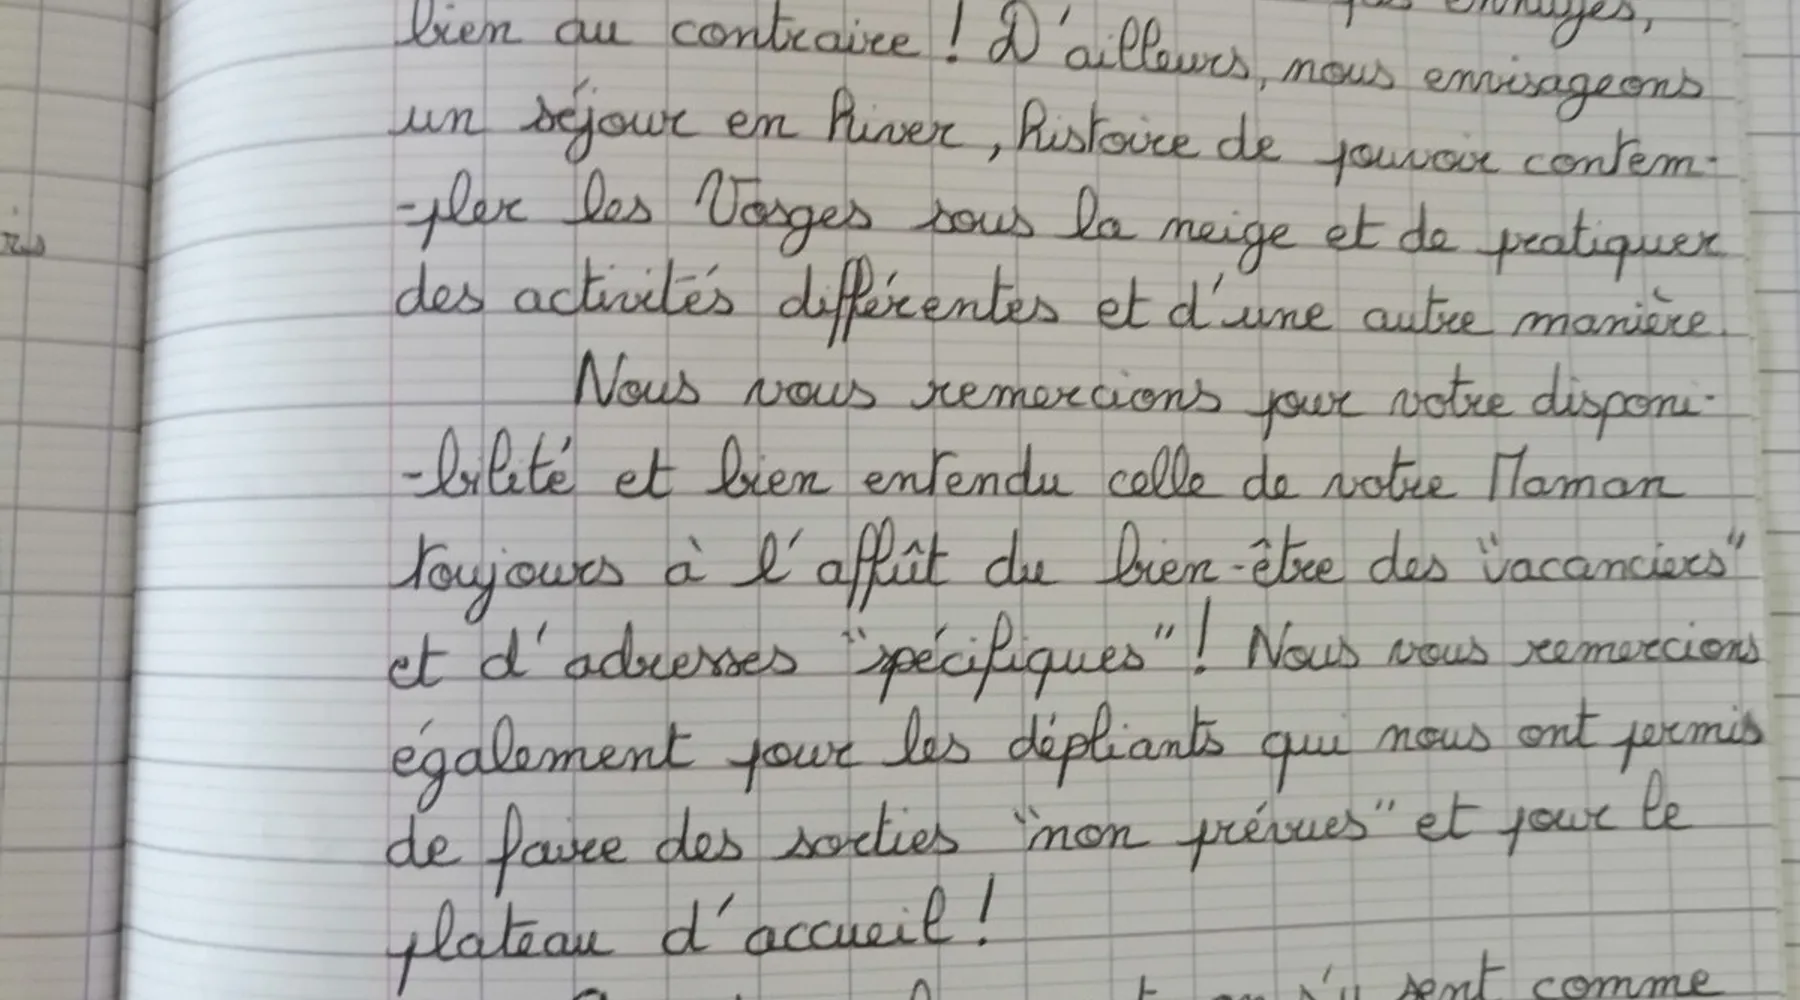 ennuyés,
bien au contraire ! D'ailleurs, nous envisageons
un séjour en hiver, histoire de pouvoir contem-
-pler les Vosges sous la neige et de pratiquer
des activités différentes et d'une autre manière.
Nous vous remercions pour votre disponi-
-bilité et bien entendu celle de votre Maman
toujours à l'affût du bien-être des "vacanciers"
et d'adresses "spécifiques" ! Nous vous remercions
également pour les dépliants qui nous ont permis
de faire des sorties "non prévues" et pour le
plateau d'accueil !
sent comme